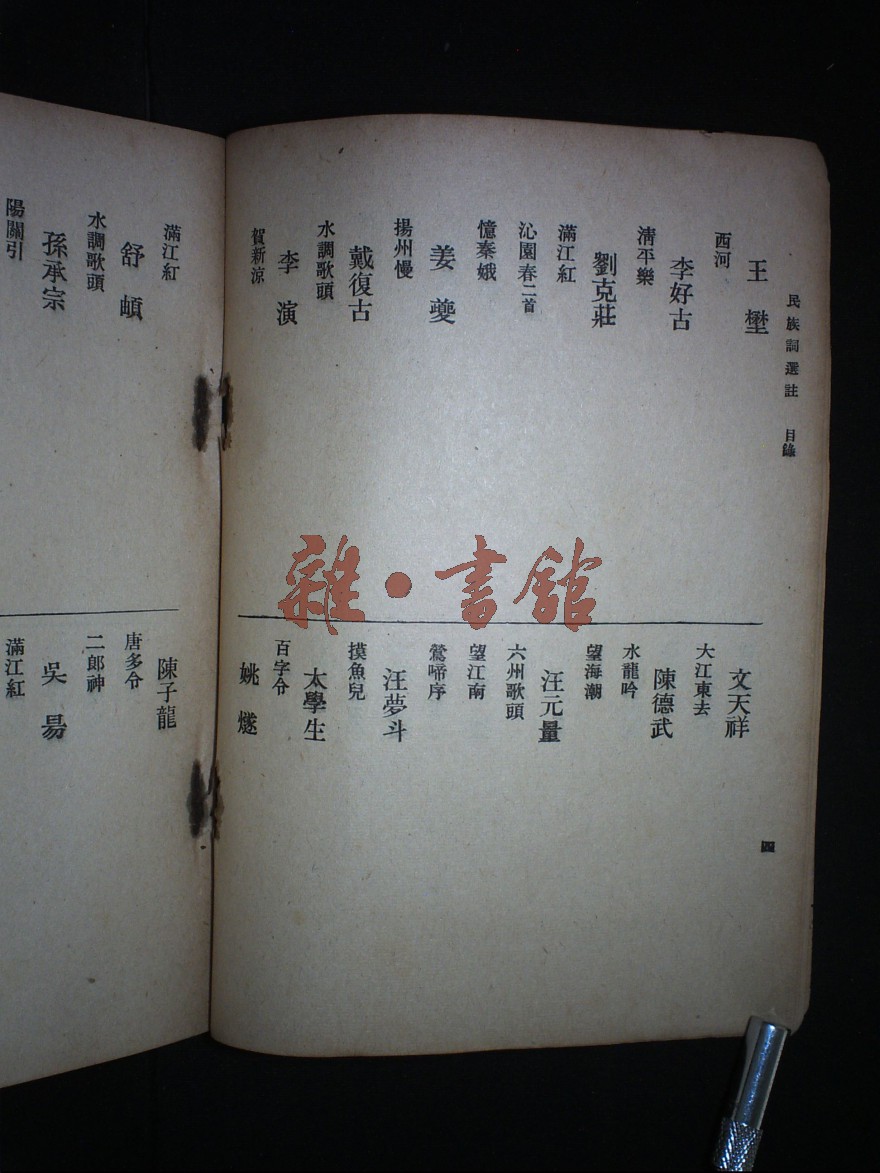 民族詞選註 目錄
王 壄
西河
李好古
清平樂
劉克莊
滿江紅
沁園春二首
憶秦娥
姜 夔
揚州慢
戴復古
水調歌頭
李 演
賀新涼
文天祥
大江東去
陳德武
水龍吟
望海潮
汪元量
六州歌頭
望江南
鶯啼序
汪夢斗
摸魚兒
太學生
百字令
姚 燧
四
滿江紅
舒 頔
水調歌頭
孫承宗
陽關引
陳子龍
唐多令
二郎神
吳 昜
滿江紅
雜·書館